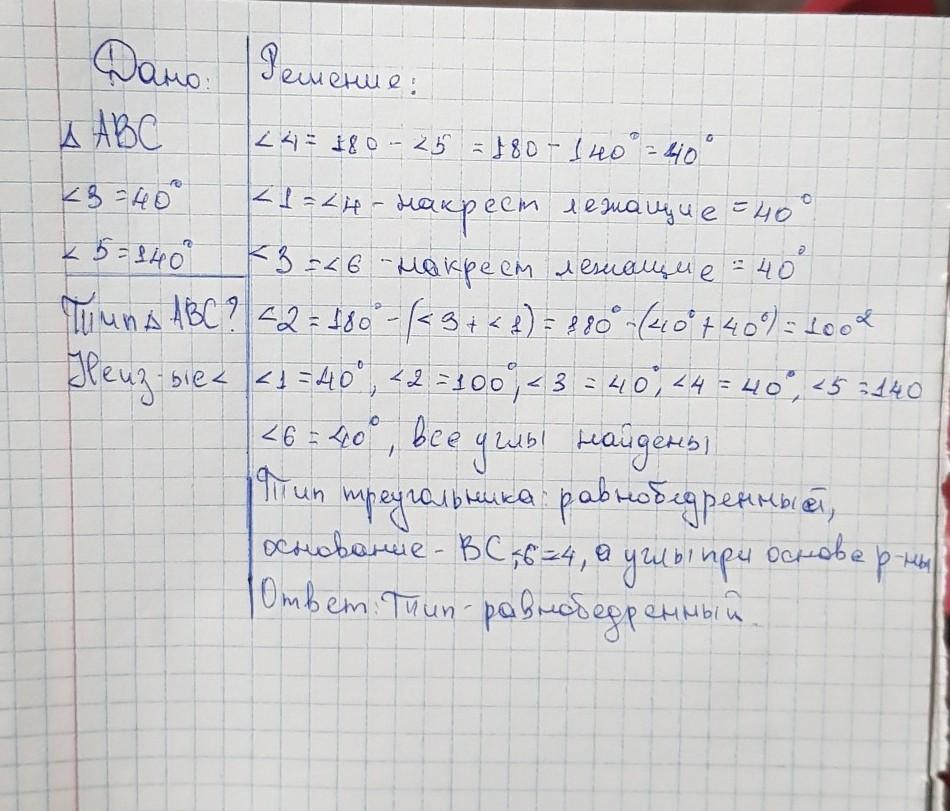 Дано:
Δ ABC
<3 = 40°
< 5 = 140°
Тип Δ ABC?
Неиз-ые <
Решение:
<4 = 180 - <5 = 180 - 140° = 40°
<1 = <4 - накрест лежащие = 40°
<3 = <6 - накрест лежащие = 40°
<2 = 180° - (<3 + <1) = 180° - (40° + 40°) = 100°
<1 = 40°, <2 = 100°, <3 = 40°, <4 = 40°, <5 = 140
<6 = 40°, все углы найдены
Тип треугольника: равнобедренный,
основание - BC, <6 = 4, а углы при основе р-ны
Ответ: Тип - равнобедренный.